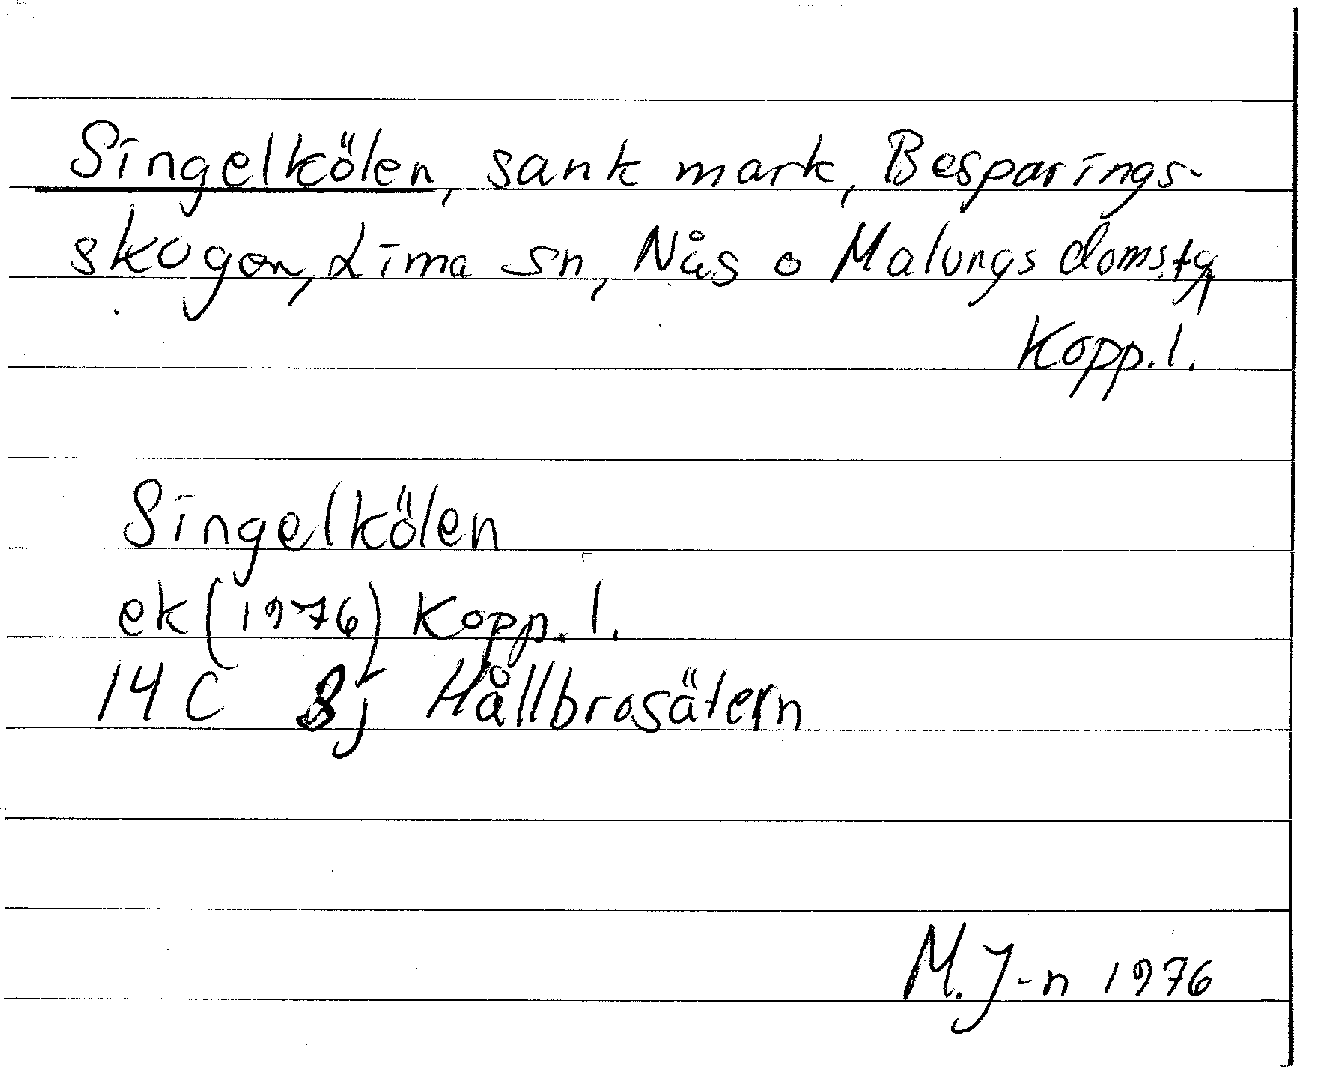 Singelkölen, sank mark, Besparings-
skogen, Lima sn, Nås o Malungs domsg,
Kopp.l.
Singelkölen
ek (1976) Kopp.l.
14 C 8j Hållbrosätern
M.J-n 1976